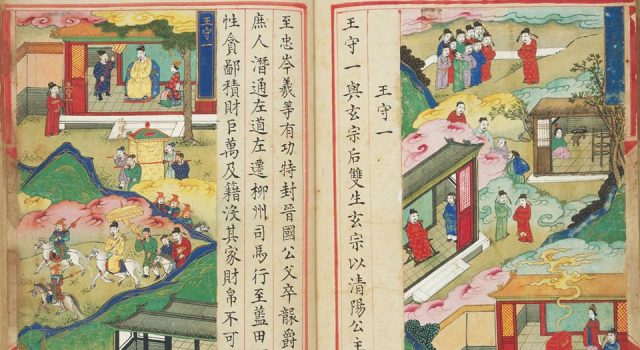 王守一
王守一與玄宗后雙生玄宗以清陽公主
至忠岑羲等有功特封晉國公父卒襲爵
庶人潛通左道左遷柳州司馬行至藍田
性貪鄙積財巨萬及籍沒其家財帛不可
王守一